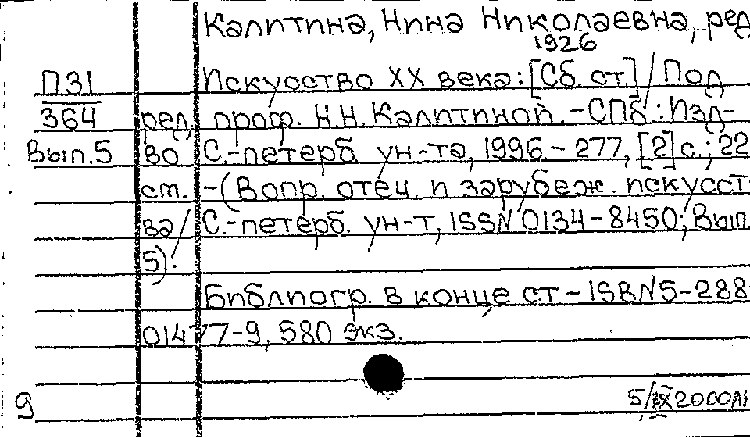 Калитина, Нина Николаевна, ред.
1926
П31 Искусство XX века: [Сб. ст.] / Под
364 ред. проф. Н.Н. Калитиной. - СПб.: Изд-
Вып.5 во С.-петерб. ун-та, 1996. - 277, [2] с.; 22
см. - (Вопр. отеч. и зарубеж. искусст-
ва / С.-петерб. ун-т, ISSN 0134-8450; Вып.
5).
Библиогр. в конце ст. - ISBN 5-288-
01477-9, 580 экз.
9 5/IX 2000